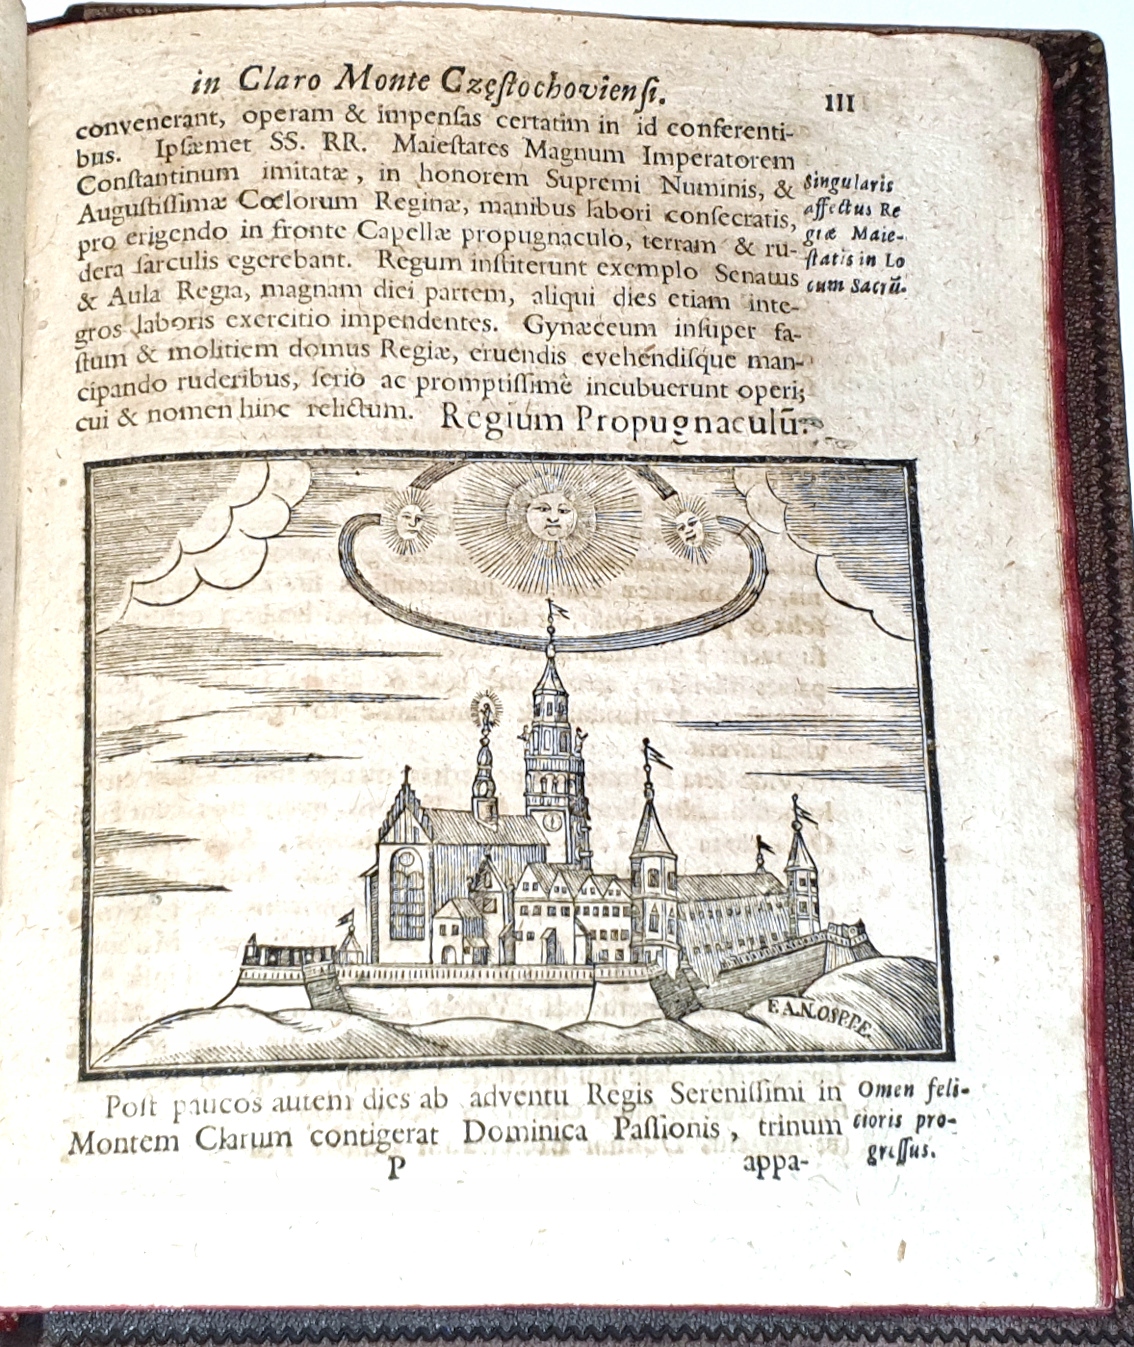 in Claro Monte Częſtochovienſi.
III
convenerant, operam & impenſas certatim in id conferenti-
bus. Ipſæmet SS. RR. Maieſtates Magnum Imperatorem
Conſtantinum imitatæ, in honorem Supremi Numinis, &
Auguſtiſſimæ Cœlorum Reginæ, manibus labori conſecratis,
pro erigendo in fronte Capellæ propugnaculo, terram & ru-
dera ſarculis egerebant. Regum inſtiterunt exemplo Senatus
& Aula Regia, magnam diei partem, aliqui dies etiam inte-
gros laboris exercitio impendentes. Gynæceum inſuper fa-
ſtum & molitiem domus Regiæ, eruendis evehéndiſque man-
cipando ruderibus, ſeriò ac promptiſſimè incubuerunt operi;
cui & nomen hinc relictum. Regium Propugnaculū.
Singularis
affectus Re
giæ Maie-
ſtatis in Lo
cum Sacrū.
F.A.N.O.S.P.P.E.
Poſt paucos autem dies ab adventu Regis Sereniſſimi in
Montem Clarum contigerat Dominica Paſſionis, trinum
Omen feli-
cioris pro-
greſſus.
P
appa-